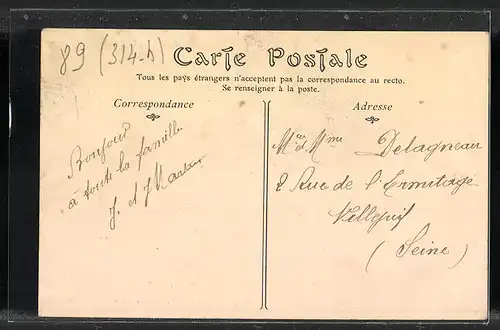 89 (314-h)
Carte Postale
Tous les pays étrangers n'acceptent pas la correspondance au recto.
Se renseigner à la poste.
Correspondance
Bonjour
à toute la famille
J. et J
Adresse
Mr et Mme Delagneau
2 Rue de l'Ermitage
Villejuif
(Seine)